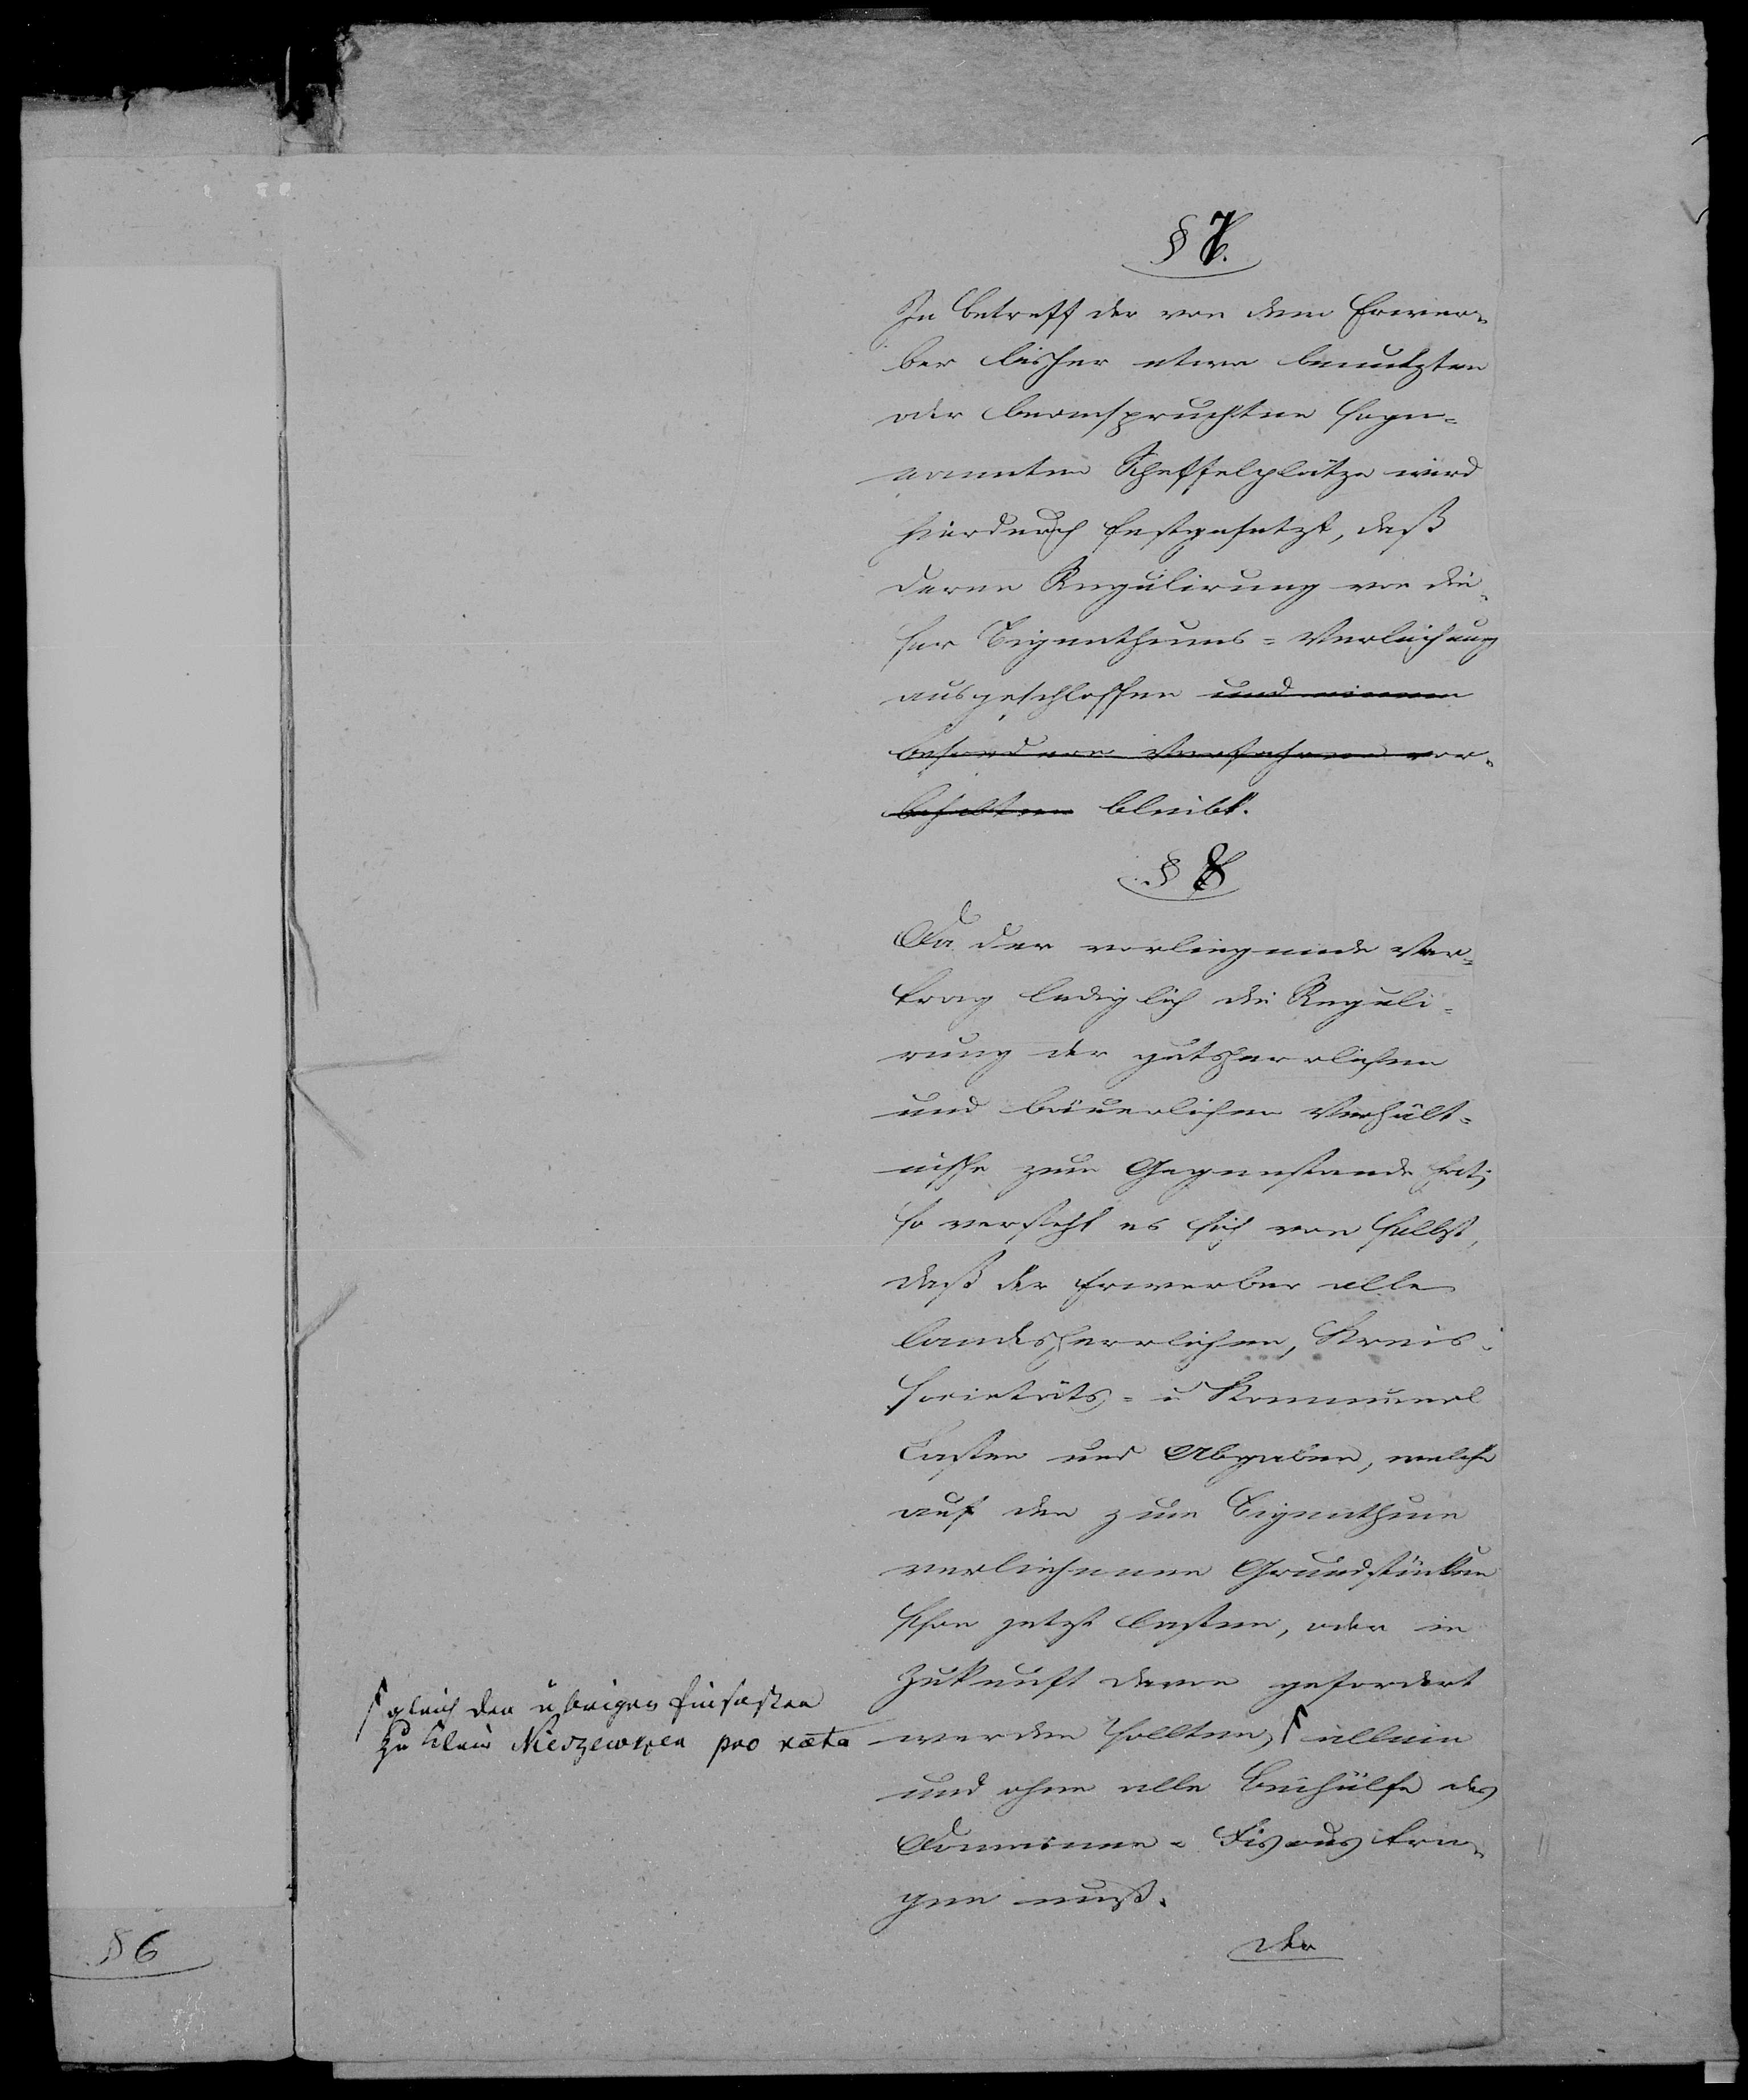 § 7.
In Betreff der von dem Erwer-
ber bisher etwa benutzten
oder beanspruchten soge-
nannten Scheffelplätze wird
hierdurch festgesetzt, daß
deren Regulirung von die-
ser Eigenthums-Verleihung
ausgeschlossen und einem
besonderen Verfahren vor-
behalten bleibt.
§ 8
Da der vorliegende Ver-
trag lediglich die Reguli-
rung der gutsherrlichen
und bäuerlichen Verhält-
nisse zum Gegenstande hat;
so versteht es sich von selbst,
daß der Erwerber alle
landesherrlichen, Kreis-
Societäts- u Kommunal
Lasten und Abgaben, welche
auf den zum Eigenthum
verliehenen Grundstücken
schon jetzt lasten, oder in
Zukunft davon gefordert
werden sollten, ſ allein
und ohne alle Beihülfe des
Domainen-Fiscus tra-
gen muß.
Der
ſ gleich den übrigen Einsassen
zu Klein Nieszewken pro rata
§ 6